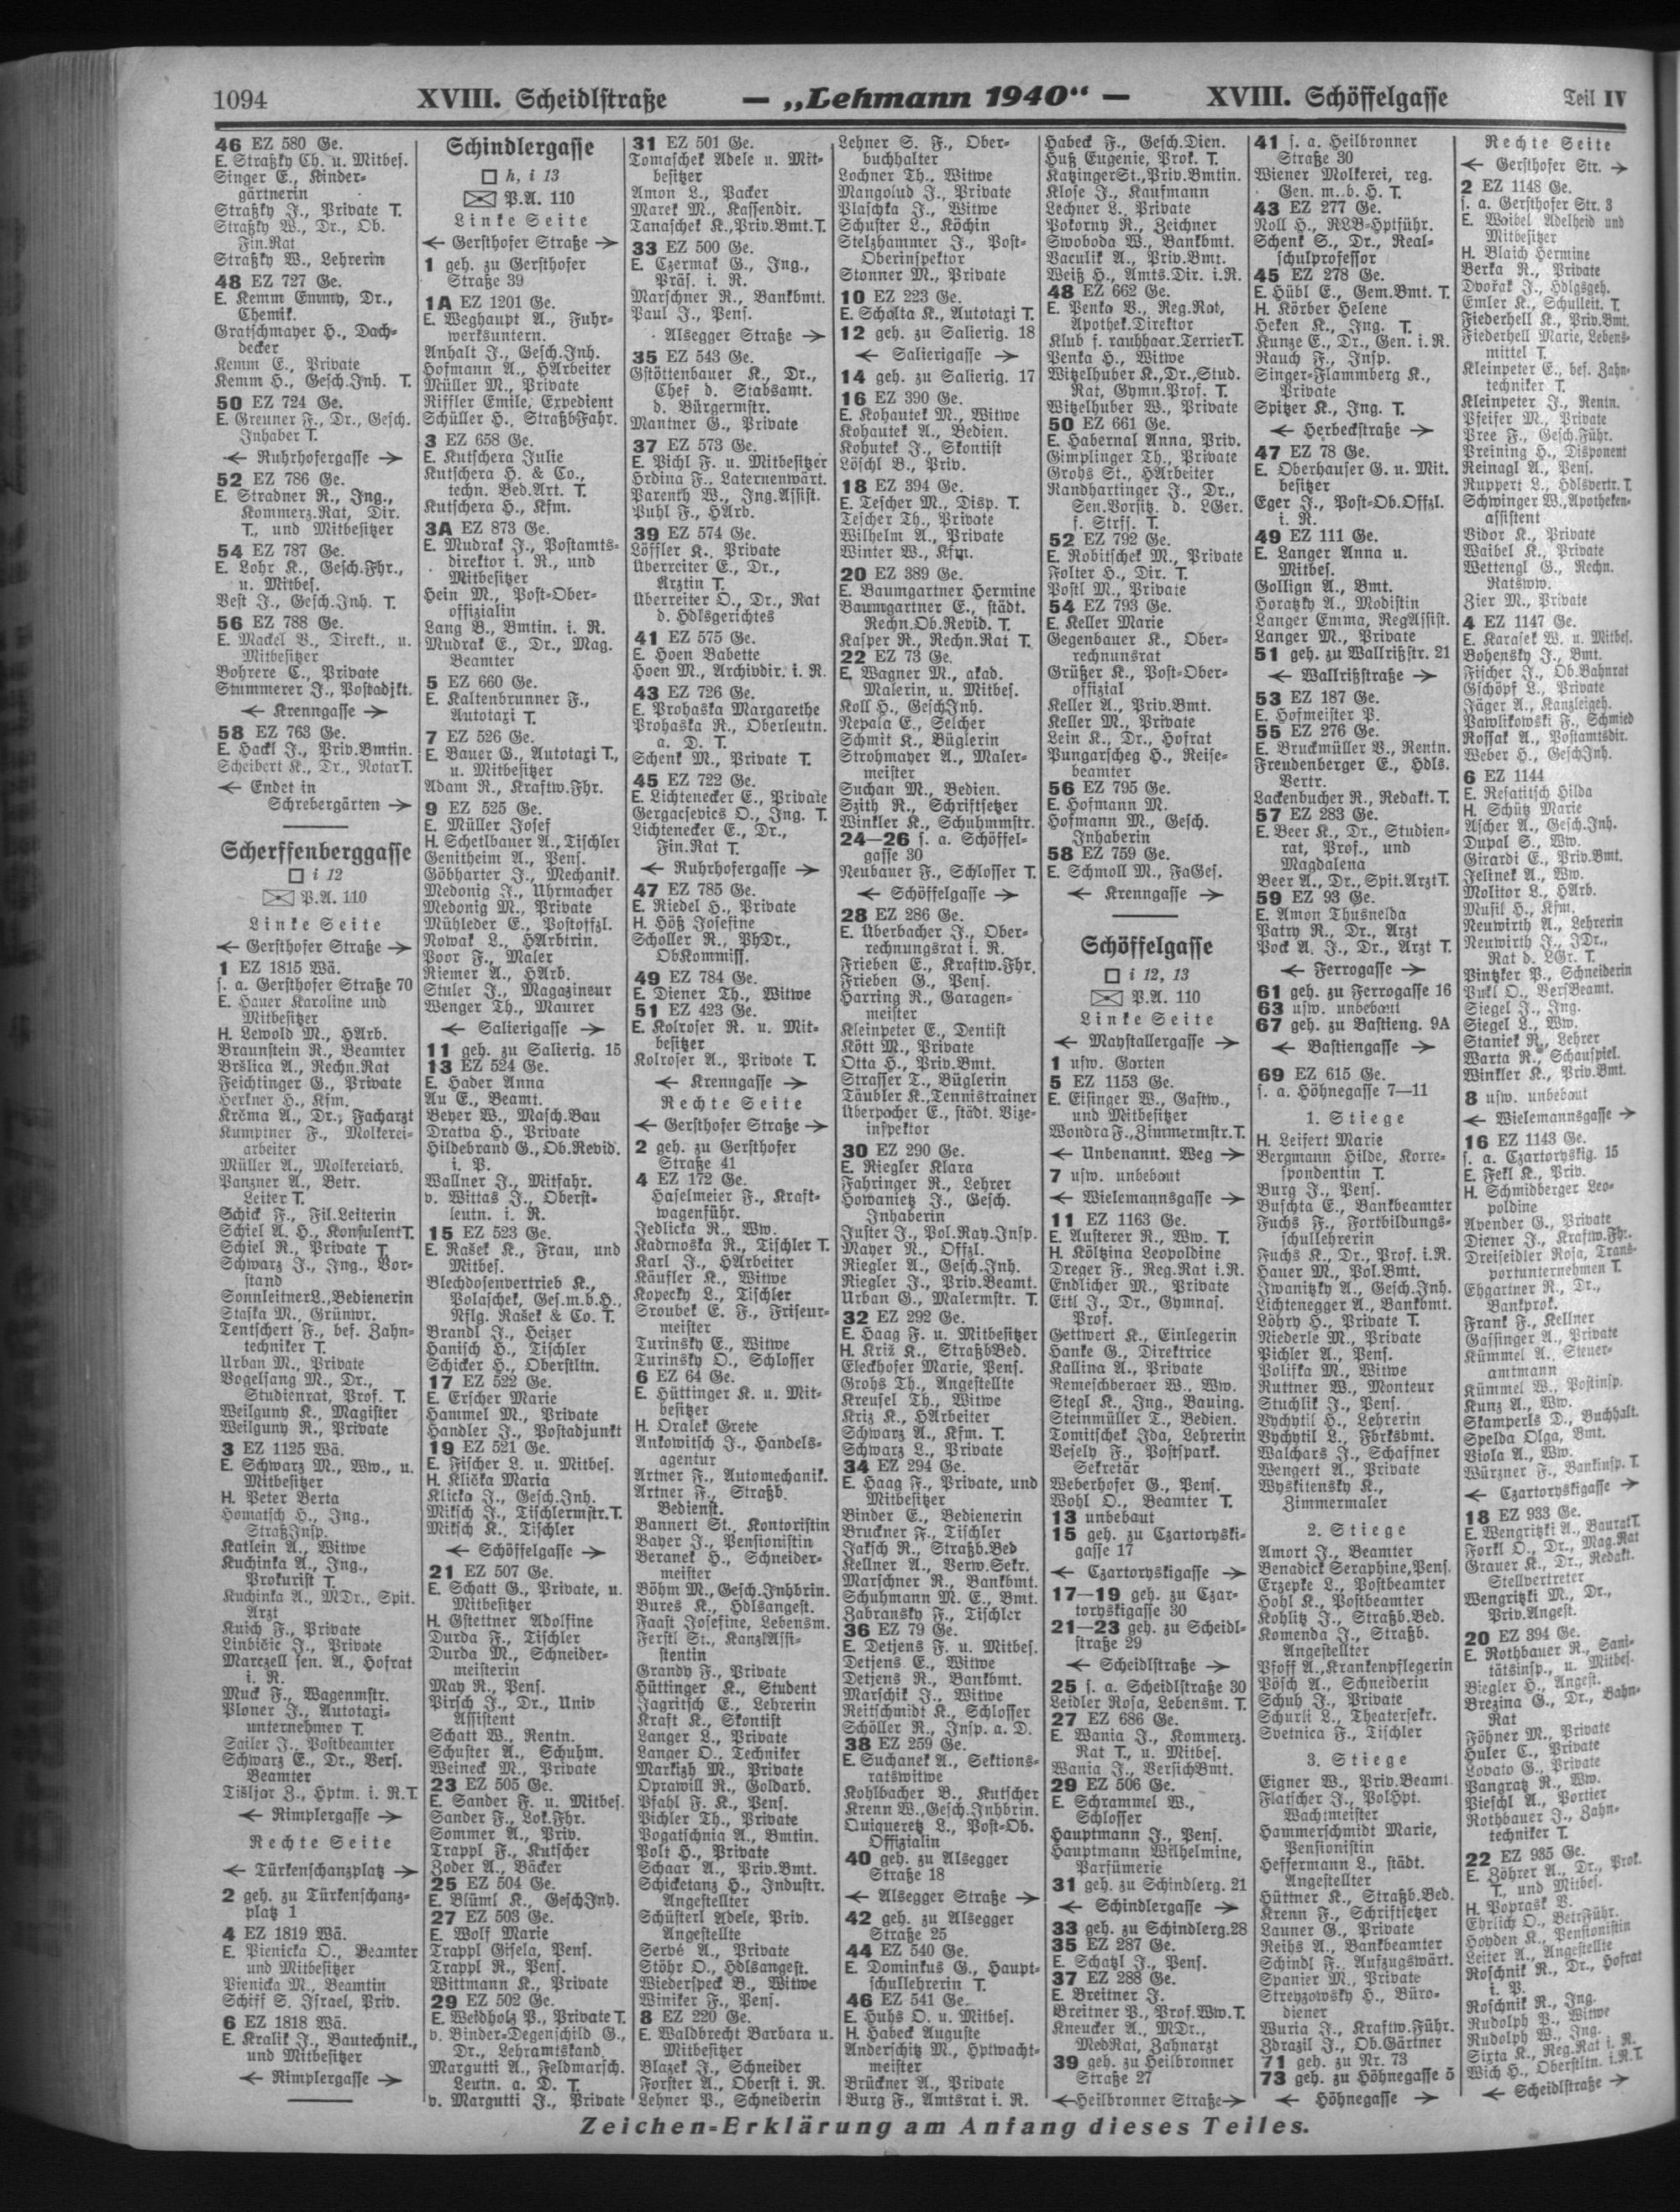 1094
XVIII. Scheidlstraße
— „Lehmann 1940“ —
XVIII. Schöffelgasse
Teil IV
46 EZ 580 Ge.
E. Straßky Ch. u. Mitbes.
Singer E., Kinder-
gärtnerin
Straßky J., Private T.
Straßky W., Dr., Ob.
Fin.Rat
Straßky W., Lehrerin
48 EZ 727 Ge.
E. Kemm Emmy, Dr.,
Chemik.
Gratschmayer H., Dach-
decker
Kemm E., Private
Kemm H., Gesch.Inh. T.
50 EZ 724 Ge.
E. Greuner F., Dr., Gesch.
Inhaber T.
← Ruhrhofergasse →
52 EZ 786 Ge.
E. Stradner R., Ing.,
Kommerz.Rat, Dir.
T., und Mitbesitzer
54 EZ 787 Ge.
E. Lohr K., Gesch.Fhr.,
u. Mitbes.
Vest J., Gesch.Inh. T.
56 EZ 788 Ge.
E. Mackel V., Direkt., u.
Mitbesitzer
Bohrere C., Private
Stummerer J., Postadjkt.
← Krenngasse →
58 EZ 763 Ge.
E. Hackl J., Priv.Bmtin.
Scheibert K., Dr., Notar T.
← Endet in
Schrebergärten →
Scherffenberggasse
□ i 12
P.A. 110
Linke Seite
← Gersthofer Straße →
1 EZ 1815 Wä.
s. a. Gersthofer Straße 70
E. Hauer Karoline und
Mitbesitzer
H. Lewold M., HArb.
Braunstein R., Beamter
Bršlica A., Rechn.Rat
Feichtinger G., Private
Herkner H., Kfm.
Krčma A., Dr., Facharzt
Kumptner F., Molkerei-
arbeiter
Müller A., Molkereiarb.
Panzner A., Betr.
Leiter T.
Schick F., Fil.Leiterin
Schiel A. H., Konsulent T.
Schiel R., Private T.
Schwarz J., Ing., Vor-
stand
Sonnleitner L., Bedienerin
Staska M., Grünwr.
Tentschert F., bef. Zahn-
techniker T.
Urban M., Private
Vogelsang M., Dr.,
Studienrat, Prof. T.
Weilguny K., Magister
Weilguny R., Private
3 EZ 1125 Wä.
E. Schwarz M., Ww., u.
Mitbesitzer
H. Peter Berta
Homatsch H., Ing.,
StraßInsp.
Katlein A., Witwe
Kuchinka A., Ing.,
Prokurist T.
Kuchinka A., MDr., Spit.
Arzt
Kuich F., Private
Linbičic J., Private
Marczell sen. A., Hofrat
i. R.
Muck F., Wagenmstr.
Ploner J., Autotaxi-
unternehmer T.
Sailer J., Postbeamter
Schwarz E., Dr., Vers.
Beamter
Tisljar Z., Hptm. i. R. T.
← Rimplergasse →
Rechte Seite
← Türkenschanzplatz →
2 geh. zu Türkenschanz-
platz 1
4 EZ 1819 Wä.
E. Pienicka O., Beamter
und Mitbesitzer
Pienicka M., Beamtin
Schiff S. Israel, Priv.
6 EZ 1818 Wä.
E. Kralik J., Bautechnik.,
und Mitbesitzer
← Rimplergasse →
Schindlergasse
□ h, i 13
P.A. 110
Linke Seite
← Gersthofer Straße →
1 geh. zu Gersthofer
Straße 39
1A EZ 1201 Ge.
E. Weghaupt A., Fuhr-
werksuntern.
Anhalt J., Gesch.Inh.
Hofmann A., HArbeiter
Müller M., Private
Riffler Emile, Expedient
Schüller H., StraßbFahr.
3 EZ 658 Ge.
E. Kutschera Julie
Kutschera H. & Co.,
techn. Bed.Art. T.
Kutschera H., Kfm.
3A EZ 873 Ge.
E. Mudrak J., Postamts-
direktor i. R., und
Mitbesitzer
Hein M., Post-Ober-
offizialin
Lang B., Bmtin. i. R.
Mudrak E., Dr., Mag.
Beamter
5 EZ 660 Ge.
E. Kaltenbrunner F.,
Autotaxi T.
7 EZ 526 Ge.
E. Bauer G., Autotaxi T.,
u. Mitbesitzer
Adam R., Kraftw.Fhr.
9 EZ 525 Ge.
E. Müller Josef
H. Schetlbauer A., Tischler
Genitheim A., Pens.
Göbharter J., Mechanik.
Medonig J., Uhrmacher
Medonig M., Private
Mühleder E., Postoffzl.
Nowak L., HArbtrin.
Poor F., Maler
Riemer A., HArb.
Stuler J., Magazineur
Wenger Th., Maurer
← Salierigasse →
11 geh. zu Salierig. 15
13 EZ 524 Ge.
E. Hader Anna
Au E., Beamt.
Beyer W., Masch.Bau
Dratva H., Private
Hildebrand G., Ob.Revid.
i. P.
Wallner J., Mitfahr.
v. Wittas J., Oberst-
leutn. i. R.
15 EZ 523 Ge.
E. Rašek K., Frau, und
Mitbes.
Blechdosenvertrieb K.,
Polaschek, Ges.m.b.H.,
Nflg. Rašek & Co. T.
Brandl J., Heizer
Hanisch H., Tischler
Schicker H., Oberstltn.
17 EZ 522 Ge.
E. Erscher Marie
Hammel M., Private
Handler J., Postadjunkt
19 EZ 521 Ge.
E. Fischer L. u. Mitbes.
H. Klička Maria
Klicka J., Gesch.Inh.
Miksch J., Tischlermstr. T.
Miksch K., Tischler
← Schöffelgasse →
21 EZ 507 Ge.
E. Schatt G., Private, u.
Mitbesitzer
H. Gstettner Adolfine
Durda F., Tischler
Durda M., Schneider-
meisterin
May R., Pens.
Pirsch J., Dr., Univ
Assistent
Schatt W., Rentn.
Schuster A., Schuhm.
Weineck M., Private
23 EZ 505 Ge.
E. Sander F. u. Mitbes.
Sander F., Lok.Fhr.
Sommer A., Priv.
Trappl F., Kutscher
Zoder A., Bäcker
25 EZ 504 Ge.
E. Blüml K., GeschInh.
27 EZ 503 Ge.
E. Wolf Marie
Trappl Gisela, Pens.
Trappl R., Pens.
Wittmann K., Private
29 EZ 502 Ge.
E. Weidholz P., Private T.
v. Binder-Degenschild G.,
Dr., Lehramtskand.
Margutti A., Feldmarsch.
Leutn. a. D. T.
v. Margutti J., Private
31 EZ 501 Ge.
Tomaschek Adele u. Mit-
besitzer
Amon L., Packer
Marek M., Kassendir.
Tanaschek K., Priv.Bmt. T.
33 EZ 500 Ge.
E. Czermak G., Ing.,
Präs. i. R.
Marschner R., Bankbmt.
Paul J., Pens.
Alsegger Straße →
35 EZ 543 Ge.
Gstöttenbauer K., Dr.,
Chef d. Stabsamt.
d. Bürgermstr.
Mantner G., Private
37 EZ 573 Ge.
E. Pichl F. u. Mitbesitzer
Hrdina F., Laternenwärt.
Parenth W., Ing.Assist.
Puhl F., HArb.
39 EZ 574 Ge.
Löffler K., Private
Überreiter E., Dr.,
Ärztin T.
Überreiter O., Dr., Rat
d. Hdlsgerichtes
41 EZ 575 Ge.
E. Hoen Babette
Hoen M., Archivdir. i. R.
43 EZ 726 Ge.
E. Prohaska Margarethe
Prohaska R., Oberleutn.
a. D. T.
Schenk M., Private T.
45 EZ 722 Ge.
E. Lichtenecker E., Private
Gergacsevics O., Ing. T.
Lichtenecker E., Dr.,
Fin.Rat T.
← Ruhrhofergasse →
47 EZ 785 Ge.
E. Riedel H., Private
H. Höß Josefine
Scholler R., PhDr.,
ObKommiss.
49 EZ 784 Ge.
E. Diener Th., Witwe
51 EZ 423 Ge.
E. Kolroser R. u. Mit-
besitzer
Kolroser A., Private T.
← Krenngasse →
Rechte Seite
← Gersthofer Straße →
2 geh. zu Gersthofer
Straße 41
4 EZ 172 Ge.
Haselmeier F., Kraft-
wagenführ.
Jedlicka R., Ww.
Kadrnoska R., Tischler T.
Karl J., HArbeiter
Käufler K., Witwe
Kopecky L., Tischler
Sroubek E. F., Friseur-
meister
Turinsky E., Witwe
Turinsky O., Schlosser
6 EZ 64 Ge.
E. Hüttinger K. u. Mit-
besitzer
H. Oralek Grete
Ankowitsch J., Handels-
agentur
Artner F., Automechanik.
Artner F., Straßb.
Bedienst.
Bannert St., Kontoristin
Bayer J., Pensionistin
Beranek H., Schneider-
meister
Böhm M., Gesch.Inhbrin.
Bures K., Hdlsangest.
Faast Josefine, Lebensm.
Ferstl St., KanzlAssi-
stentin
Grandy F., Private
Hüttinger K., Student
Jagritsch E., Lehrerin
Kraft K., Skontist
Langer L., Private
Langer O., Techniker
Markizh M., Private
Oprawill R., Goldarb.
Pfahl F. K., Pens.
Pichler Th., Private
Pogatschnia A., Bmtin.
Polt H., Private
Schaar A., Priv.Bmt.
Schicketanz H., Industr.
Angestellter
Schüsterl Adele, Priv.
Angestellte
Servé A., Private
Stöhr O., Hdlsangest.
Wiederspeck B., Witwe
Winiker F., Pens.
8 EZ 220 Ge.
E. Waldbrecht Barbara u.
Mitbesitzer
Blazek J., Schneider
Forster A., Oberst i. R.
Lehner P., Schneiderin
Lehner S. F., Ober-
buchhalter
Lochner Th., Witwe
Mangolud J., Private
Plaschka J., Witwe
Schuster L., Köchin
Stelzhammer J., Post-
Oberinspektor
Stonner M., Private
10 EZ 223 Ge.
E. Scholta K., Autotaxi T.
12 geh. zu Salierig. 18
← Salierigasse →
14 geh. zu Salierig. 17
16 EZ 390 Ge.
E. Kohautek M., Witwe
Kohautek A., Bedien.
Kohutek J., Skontist
Löschl B., Priv.
18 EZ 394 Ge.
E. Tescher M., Disp. T.
Tescher Th., Private
Wilhelm A., Private
Winter W., Kfm.
20 EZ 389 Ge.
E. Baumgartner Hermine
Baumgartner E., städt.
Rechn.Ob.Revid. T.
Kasper R., Rechn.Rat T.
22 EZ 73 Ge.
E. Wagner M., akad.
Malerin, u. Mitbes.
Koll H., GeschInh.
Nepala E., Selcher
Schmit K., Büglerin
Strohmayer A., Maler-
meister
Suchan M., Bedien.
Szith R., Schriftsetzer
Winkler K., Schuhmmstr.
24—26 s. a. Schöffel-
gasse 30
Neubauer F., Schlosser T.
← Schöffelgasse →
28 EZ 286 Ge.
E. Überbacher J., Ober-
rechnungsrat i. R.
Frieben E., Kraftw.Fhr.
Frieben G., Pens.
Harring R., Garagen-
meister
Kleinpeter E., Dentist
Kött M., Private
Otta H., Priv.Bmt.
Strasser T., Büglerin
Täubler K., Tennistrainer
Überpacher E., städt. Vize-
inspektor
30 EZ 290 Ge.
E. Riegler Klara
Fahringer R., Lehrer
Howanietz J., Gesch.
Inhaberin
Juster J., Pol.Ray.Insp.
Mayer R., Offzl.
Riegler A., Gesch.Inh.
Riegler J., Priv.Beamt.
Urban G., Malermstr. T.
32 EZ 292 Ge.
E. Haag F. u. Mitbesitzer
H. Križ K., StraßbBed.
Eleckhofer Marie, Pens.
Grohs Th., Angestellte
Kreusel Th., Witwe
Kriz K., HArbeiter
Schwarz A., Kfm. T.
Schwarz L., Private
34 EZ 294 Ge.
E. Haag F., Private, und
Mitbesitzer
Binder E., Bedienerin
Bruckner F., Tischler
Jaksch R., Straßb.Bed
Kellner A., Verw.Sekr.
Marschner R., Bankbmt.
Schuhmann M. E., Bmt.
Zabransky F., Tischler
36 EZ 79 Ge.
E. Detjens F. u. Mitbes.
Detjens E., Witwe
Detjens R., Bankbmt.
Marschik J., Witwe
Reitschmidt K., Schlosser
Schöller R., Insp. a. D.
38 EZ 259 Ge.
E. Suchanek A., Sektions-
ratswitwe
Kohlbacher B., Kutscher
Krenn W., Gesch.Inhbrin.
Quiqueretz L., Post-Ob.
Offizialin
40 geh. zu Alsegger
Straße 18
← Alsegger Straße →
42 geh. zu Alsegger
Straße 25
44 EZ 540 Ge.
E. Dominkus G., Haupt-
schullehrerin T.
46 EZ 541 Ge.
E. Huhs O. u. Mitbes.
H. Habeck Auguste
Anderschitz M., Hptwacht-
meister
Brückner A., Private
Burg F., Amtsrat i. R.
Habeck F., Gesch.Dien.
Huß Eugenie, Prok. T.
Katzinger St., Priv.Bmtin.
Klose J., Kaufmann
Lechner L., Private
Pokorny R., Zeichner
Swoboda W., Bankbmt.
Vaculik A., Priv.Bmt.
Weiß H., Amts.Dir. i.R.
48 EZ 662 Ge.
E. Penka V., Reg.Rat,
Apothek.Direktor
Klub f. rauhhaar.Terrier T.
Penka H., Witwe
Witzelhuber K., Dr., Stud.
Rat, Gymn.Prof. T.
Witzelhuber W., Private
50 EZ 661 Ge.
E. Habernal Anna, Priv.
Gimplinger Th., Private
Grohs St., HArbeiter
Randhartinger J., Dr.,
Sen.Vorsitz. d. LGer.
f. Strfs. T.
52 EZ 792 Ge.
E. Robitschek M., Private
Folter H., Dir. T.
Postl M., Private
54 EZ 793 Ge.
E. Keller Marie
Gegenbauer K., Ober-
rechnunsrat
Grüßer K., Post-Ober-
offizial
Keller A., Priv.Bmt.
Keller M., Private
Lein K., Dr., Hofrat
Pungarscheg H., Reise-
beamter
56 EZ 795 Ge.
E. Hofmann M.
Hofmann M., Gesch.
Inhaberin
58 EZ 759 Ge.
E. Schmoll M., FaGes.
← Krenngasse →
Schöffelgasse
□ i 12, 13
P.A. 110
Linke Seite
← Maystallergasse →
1 usw. Garten
5 EZ 1153 Ge.
E. Eisinger W., Gastw.,
und Mitbesitzer
Wondra F., Zimmermstr. T.
← Unbenannt. Weg →
7 usw. unbebaut
← Wielemannsgasse →
11 EZ 1163 Ge.
E. Austerer R., Ww. T.
H. Költzina Leopoldine
Dreger F., Reg.Rat i.R.
Endlicher M., Private
Eitl J., Dr., Gymnas.
Prof.
Gettwert K., Einlegerin
Hanke G., Direktrice
Kallina A., Private
Remeschberger W., Ww.
Stegl K., Ing., Bauing.
Steinmüller T., Bedien.
Tomitschek Ida, Lehrerin
Vesely F., Postspark.
Sekretär
Weberhofer G., Pens.
Wohl O., Beamter T.
13 unbebaut
15 geh. zu Czartoryski-
gasse 17
← Czartoryskigasse →
17—19 geh. zu Czar-
toryskigasse 30
21—23 geh. zu Scheidl-
straße 29
← Scheidlstraße →
25 s. a. Scheidlstraße 30
Leidler Rosa, Lebensm. T.
27 EZ 686 Ge.
E. Wania J., Kommerz.
Rat T., u. Mitbes.
Wania J., VersichBmt.
29 EZ 506 Ge.
E. Schrammel W.,
Schlosser
Hauptmann J., Pens.
Hauptmann Wilhelmine,
Parfümerie
31 geh. zu Schindlerg. 21
← Schindlergasse →
33 geh. zu Schindlerg. 28
35 EZ 287 Ge.
E. Schatzl J., Pens.
37 EZ 288 Ge.
E. Breitner J.
Breitner P., Prof.Ww. T.
Kneucker A., MDr.,
MedRat, Zahnarzt
39 geh. zu Heilbronner
Straße 27
← Heilbronner Straße →
41 s. a. Heilbronner
Straße 30
Wiener Molkerei, reg.
Gen. m. b. H. T.
43 EZ 277 Ge.
Noll H., RLB-Hptführ.
Schenk S., Dr., Real-
schulprofessor
45 EZ 278 Ge.
E. Hübl E., Gem.Bmt. T.
H. Körber Helene
Heken K., Ing. T.
Kunze E., Dr., Gen. i. R.
Rauch F., Insp.
Singer-Flammberg K.,
Private
Spitzer K., Ing. T.
← Herbeckstraße →
47 EZ 78 Ge.
E. Oberhauser G. u. Mit-
besitzer
Eger J., Post-Ob.Offzl.
i. R.
49 EZ 111 Ge.
E. Langer Anna u.
Mitbes.
Gollign A., Bmt.
Horatzky A., Modistin
Langer Emma, RegAssist.
Langer M., Private
51 geh. zu Wallrißstr. 21
← Wallrißstraße →
53 EZ 187 Ge.
E. Hofmeister P.
55 EZ 276 Ge.
E. Bruckmüller V., Rentn.
Freudenberger E., Hdls.
Vertr.
Lackenbucher R., Redakt. T.
57 EZ 283 Ge.
E. Beer K., Dr., Studien-
rat, Prof., und
Magdalena
Beer A., Dr., Spit.Arzt T.
59 EZ 93 Ge.
E. Amon Thusnelda
Patry R., Dr., Arzt
Pock A. J., Dr., Arzt T.
← Ferrogasse →
61 geh. zu Ferrogasse 16
63 usw. unbebaut
67 geh. zu Bastieng. 9A
← Bastiengasse →
69 EZ 615 Ge.
s. a. Höhnegasse 7—11
1. Stiege
H. Leifert Marie
Bergmann Hilde, Korre-
spondentin T.
Burg J., Pens.
Buschta E., Bankbeamter
Fuchs F., Fortbildungs-
schullehrerin
Fuchs K., Dr., Prof. i.R.
Hauer M., Pol.Bmt.
Iwanitzky A., Gesch.Inh.
Lichtenegger A., Bankbmt.
Löhry H., Private T.
Niederle M., Private
Pichler A., Pens.
Poliska M., Witwe
Ruttner W., Monteur
Stuchlik J., Pens.
Vychytil H., Lehrerin
Vychytil L., Fbrksbmt.
Walchars J., Schaffner
Wengert A., Private
Wyskitensky K.,
Zimmermaler
2. Stiege
Amort J., Beamter
Benadick Seraphine, Pens.
Erzepke L., Postbeamter
Hohl K., Postbeamter
Kohlitz J., Straßb.Bed.
Komenda J., Straßb.
Angestellter
Pfoff A., Krankenpflegerin
Pösch A., Schneiderin
Schuh J., Private
Schurli L., Theatersekr.
Svetnica F., Tischler
3. Stiege
Eigner W., Priv.Beamt.
Flatscher J., PolHpt.
Wachtmeister
Hammerschmidt Marie,
Pensionistin
Heffermann L., städt.
Angestellter
Hüttner K., Straßb.Bed.
Krenn F., Schriftsetzer
Launer G., Private
Reihs A., Bankbeamter
Schindl F., Aufzugswärt.
Spanier M., Private
Streyzowsky H., Büro-
diener
Wuria J., Kraftw.Führ.
Zdrazil J., Ob.Gärtner
71 geh. zu Nr. 73
73 geh. zu Höhnegasse 5
← Höhnegasse →
Rechte Seite
← Gersthofer Str. →
2 EZ 1148 Ge.
s. a. Gersthofer Str. 3
E. Woibel Adelheid und
Mitbesitzer
H. Blaich Hermine
Berka R., Private
Dvořak J., Hdlgsgeh.
Emler K., Schulleit. T.
Fiederhell K., Priv.Bmt.
Fiederhell Marie, Lebens-
mittel T.
Kleinpeter E., bef. Zahn-
techniker T.
Kleinpeter J., Rentn.
Pfeifer M., Private
Pree F., Gesch.Führ.
Preining H., Disponent
Reinagl A., Pens.
Ruppert L., Hdlsvertr. T.
Schwinger W., Apotheken-
assistent
Vidor K., Private
Waibel K., Private
Wettengl G., Rechn.
Ratsww.
Zier M., Private
4 EZ 1147 Ge.
E. Karasek W. u. Mitbes.
Bohensky J., Bmt.
Fischer J., Ob.Bahnrat
Gschöpf L., Private
Jäger A., Kanzleigeh.
Pawlikowski F., Schmied
Rossak A., Postamtsdir.
Weber H., GeschInh.
6 EZ 1144
E. Resatitsch Hilda
H. Schütz Marie
Ascher A., Gesch.Inh.
Dupal S., Ww.
Girardi E., Priv.Bmt.
Jelinek A., Ww.
Molitor L., HArb.
Musil H., Kfm.
Neuwirth A., Lehrerin
Neuwirth J., JDr.,
Rat d. LGr. T.
Pintzker P., Schneiderin
Pukl O., VersBeamt.
Siegel J., Ing.
Siegel L., Ww.
Staniek R., Lehrer
Warta R., Schauspiel.
Winkler K., Priv.Bmt.
8 usw. unbebaut
← Wielemannsgasse →
16 EZ 1143 Ge.
s. a. Czartoryskig. 15
E. Fekl K., Priv.
H. Schmidberger Leo-
poldine
Avender G., Private
Diener J., Kraftw.Fhr.
Dreiseidler Rosa, Trans-
portunternehmen T.
Ehgartner R., Dr.,
Bankprok.
Frank F., Kellner
Gassinger A., Private
Kümmel A., Steuer-
amtmann
Kümmel W., Postinsp.
Kunz A., Ww.
Skamperls D., Buchhalt.
Spelda Olga, Bmt.
Viola A., Ww.
Würzner F., Bankinsp. T.
← Czartoryskigasse →
18 EZ 933 Ge.
E. Wengritzki A., Baurat T.
Forkl O., Dr., Mag.Rat
Grauer K., Dr., Redakt.
Stellvertreter
Wengritzki M., Dr.,
Priv.Angest.
20 EZ 394 Ge.
E. Rothbauer R., Sani-
tätsinsp., u. Mitbes.
Biegler H., Angest.
Brezina G., Dr., Bahn-
Rat
Föhner M., Private
Huler C., Private
Lovato G., Private
Pangratz R., Ww.
Pieschl A., Portier
Rothbauer J., Zahn-
techniker T.
22 EZ 935 Ge.
E. Zöhrer A., Dr., Prok.
T., und Mitbes.
H. Poprask V.
Ehrlich O., BetrFühr.
Hoyden K., Pensionistin
Leiter A., Angestellte
Roschnik R., Dr., Hofrat
i. P.
Roschnik R., Ing.
Rudolph P., Witwe
Rudolph W., Ing.
Sixta K., Reg.Rat i. R.
Wich H., Oberstltn. i.R. T.
← Scheidlstraße →
Zeichen-Erklärung am Anfang dieses Teiles.